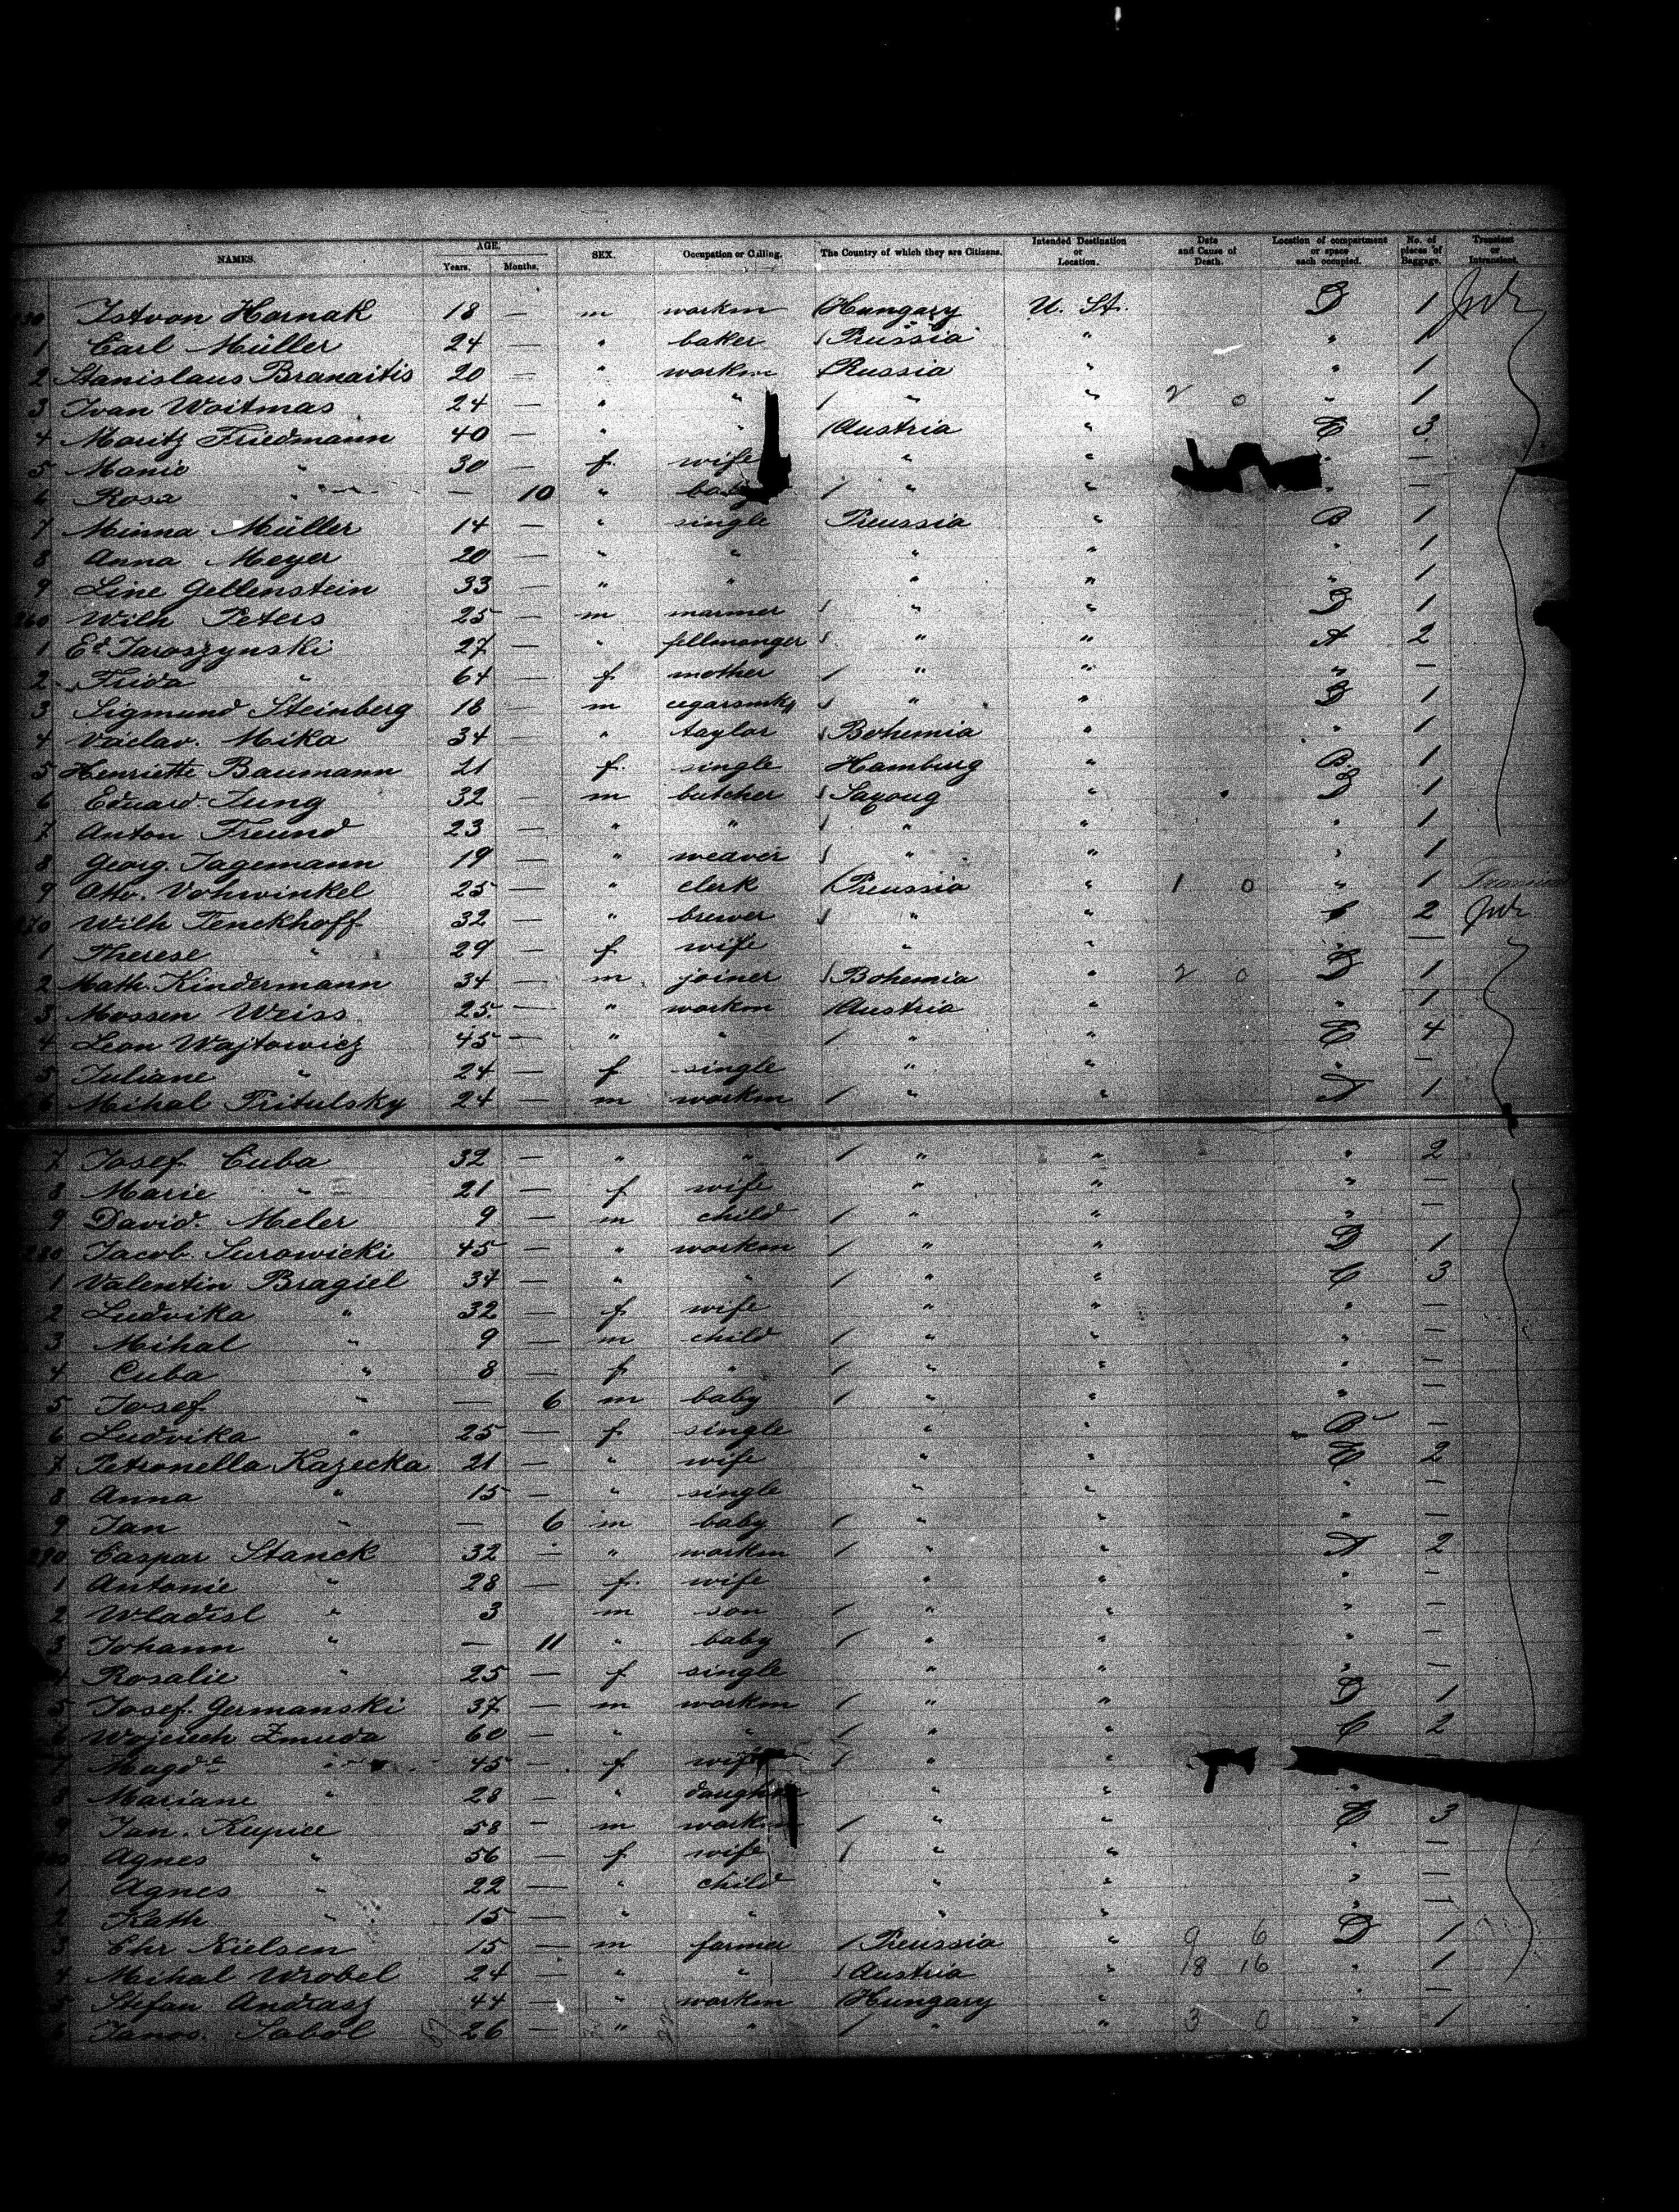 NAMES. AGE. Years. Months. SEX. Occupation or Calling. The Country of which they are Citizens. Intended Destination or Location. Date and Cause of Death. Location of compartment or space each occupied. No. of pieces of Baggage. Transient or Intransient.
Istvan Harnak 18 — m workm Hungary U. St. D 1
1 Carl Müller 24 — " baker Prussia " " 1
2 Stanislaus Branaitis 20 — " workm Russia " " 1
3 Ivan Woitmas 24 — " " " " 2 0 " 1
4 Moritz Friedmann 40 — " " Austria " E 3
5 Manie " 30 — f wife " " " —
6 Rosa " — 10 " baby " " " —
7 Minna Müller 14 — " single Preussia " B 1
8 Anna Meyer 20 — " " " " " 1
9 Line Gellenstein 33 — " " " " " 1
260 Wilh Peters 25 — m marmer " " D 1
1 Ed Jaroszynski 27 — " fellmonger " " A 2
2 Frida " 64 — f mother " " " —
3 Sigmund Steinberg 18 — m " " D 1
4 Vaclav. Mika 34 — " taylor Bohemia " " 1
5 Henriette Baumann 21 f. single Hamburg " B. 1
6 Eduard Jung 32 — m butcher Saxoug " D 1
7 Anton Freund 23 — " " " " " 1
8 Georg. Jagemann 19 — " weaver " " " 1
9 Otto. Vohwinkel 25 — " clerk Preussia " 1 0 " 1
270 Wilh Tenckhoff 32 — " brewer " " C 2
1 Therese " 29 — f wife " " " —
2 Math. Kindermann 34 — m joiner Bohemia " 2 0 D 1
3 Mossen Weiss 25. — " workm Austria " " 1
4 Leon Wajtowicz 45 — " " " " E 4
5 Juliane " 24 — f single " " " —
6 Mihal Pritulsky 24 — m workm " " A 1
7 Josef Cuba 32 — " " " " " 2
8 Marie " 21 — f wife " " " —
9 David. Meler 9 — m child " " " —
280 Jacob. Surowicki 45 — " workm " " D 1
1 Valentin Bragiel 34 — " " " " C 3
2 Ludvika " 32 — f wife " " " —
3 Mihal " 9 — m child " " " —
4 Cuba " 8 — f " " " " —
5 Josef " — 6 m baby " " " —
6 Ludvika " 25 — f single " " B —
7 Petronella Kazecka 21 — " wife " " E 2
8 Anna " 15 — " single " " " —
9 Jan " — 6 m baby " " " —
290 Caspar Stanck 32 — " workm " " A 2
1 Antonie " 28 — f. wife " " " —
2 Wladisl " 3 m son " " " —
3 Johann " — 11 " baby " " " —
4 Rosalie " 25 — f single " " " —
5 Josef. Germanski 37 — m workm " " D 1
6 Wojciech Zmuda 60 — " " " " C 2
7 Magd " 45 — f wife " " —
8 Mariane " 28 — " daughter " " "
9 Jan. Kupice 58 — m workm " " E 3
Agnes " 56 — f wife " " " —
1 Agnes " 22 — " child " " " —
2 Kath " 15 — " " " " " —
3 Chr Nielsen 15 — m farmer Preussia " 9 6 D 1
4 Mihal Wrobel 24 — " " Austria " 18 16 " 1
5 Stefan Andrasz 44 — " workm Hungary " " —
6 Janos. Sabol 26 — " " " " 3 0 " 1